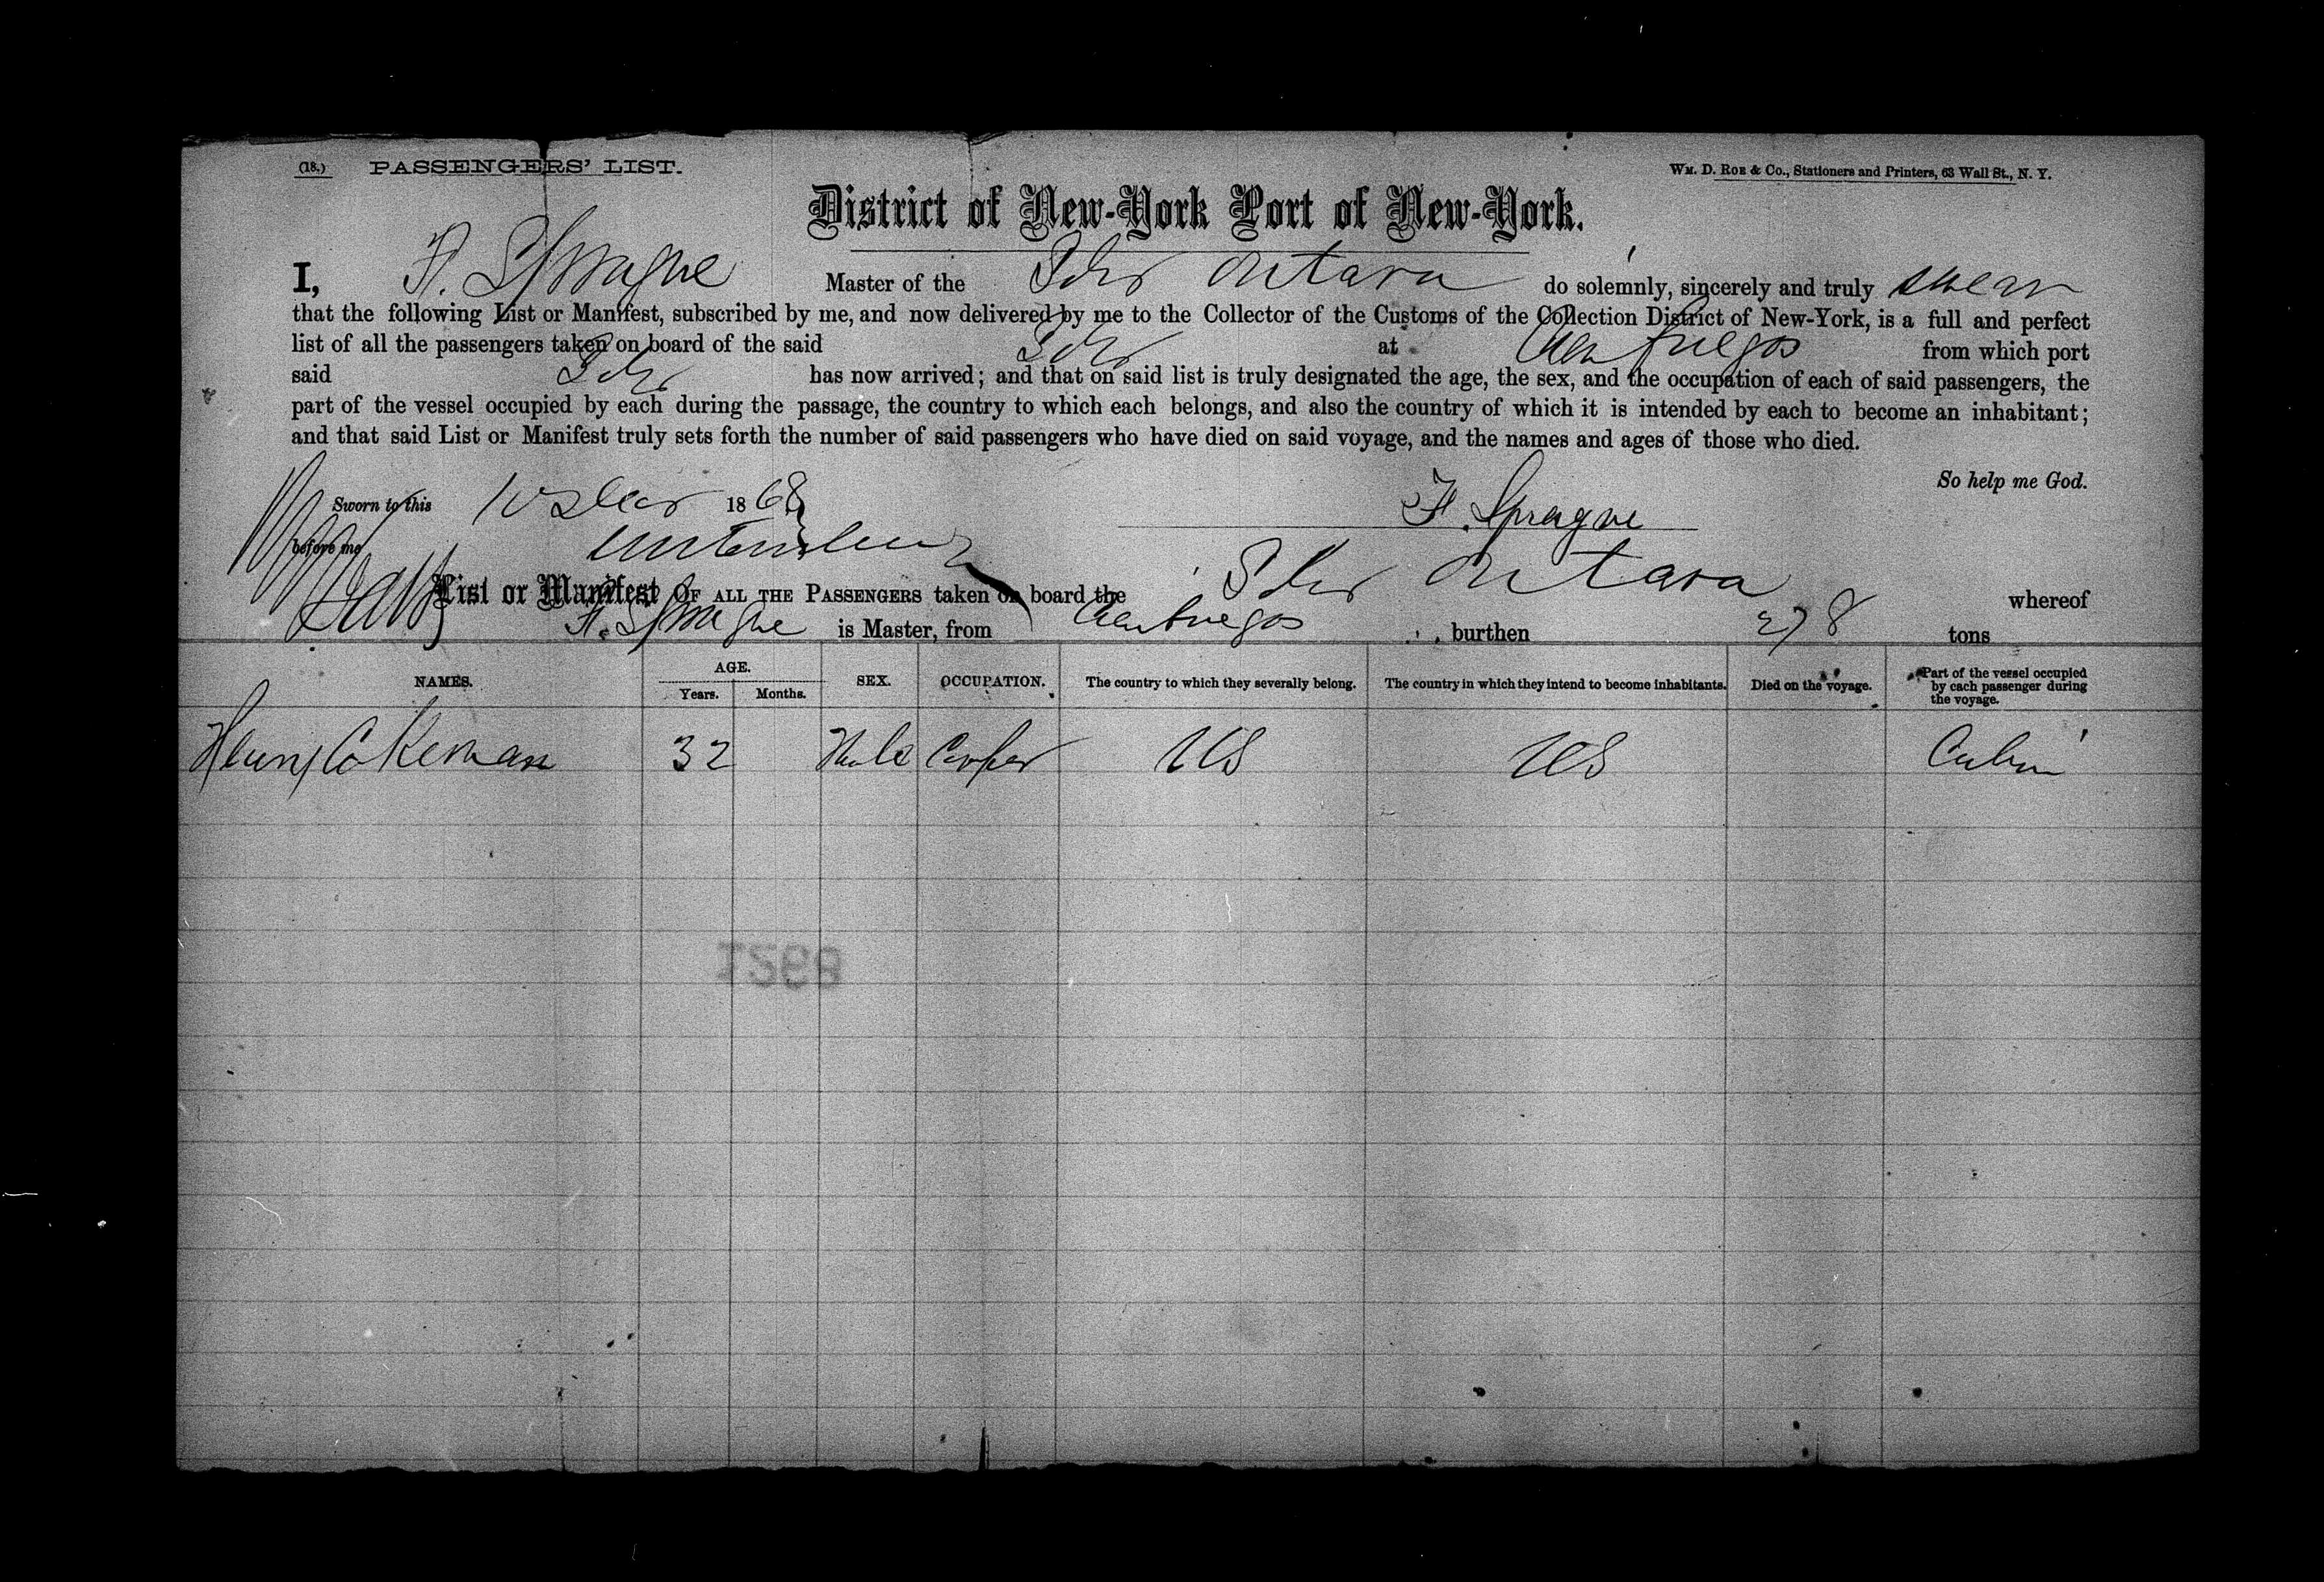 (18.) PASSENGERS' LIST.
WM. D. ROE & Co., Stationers and Printers, 63 Wall St., N. Y.
District of New-York Port of New-York.
I, F. Sprague Master of the Schr do solemnly, sincerely and truly swear
that the following List or Manifest, subscribed by me, and now delivered by me to the Collector of the Customs of the Collection District of New-York, is a full and perfect
list of all the passengers taken on board of the said Schr at Cienfuegos from which port
said Schr has now arrived; and that on said list is truly designated the age, the sex, and the occupation of each of said passengers, the
part of the vessel occupied by each during the passage, the country to which each belongs, and also the country of which it is intended by each to become an inhabitant;
and that said List or Manifest truly sets forth the number of said passengers who have died on said voyage, and the names and ages of those who died.
So help me God.
Sworn to this 1868
F. Sprague
before me
List or Manifest OF ALL THE PASSENGERS taken on board the Schr whereof
F. Sprague is Master, from Cienfuegos burthen 278 tons
NAMES. AGE. Years. Months. SEX. OCCUPATION. The country to which they severally belong. The country in which they intend to become inhabitants. Died on the voyage. Part of the vessel occupied by each passenger during the voyage.
Henry 32 Male US US Cabin